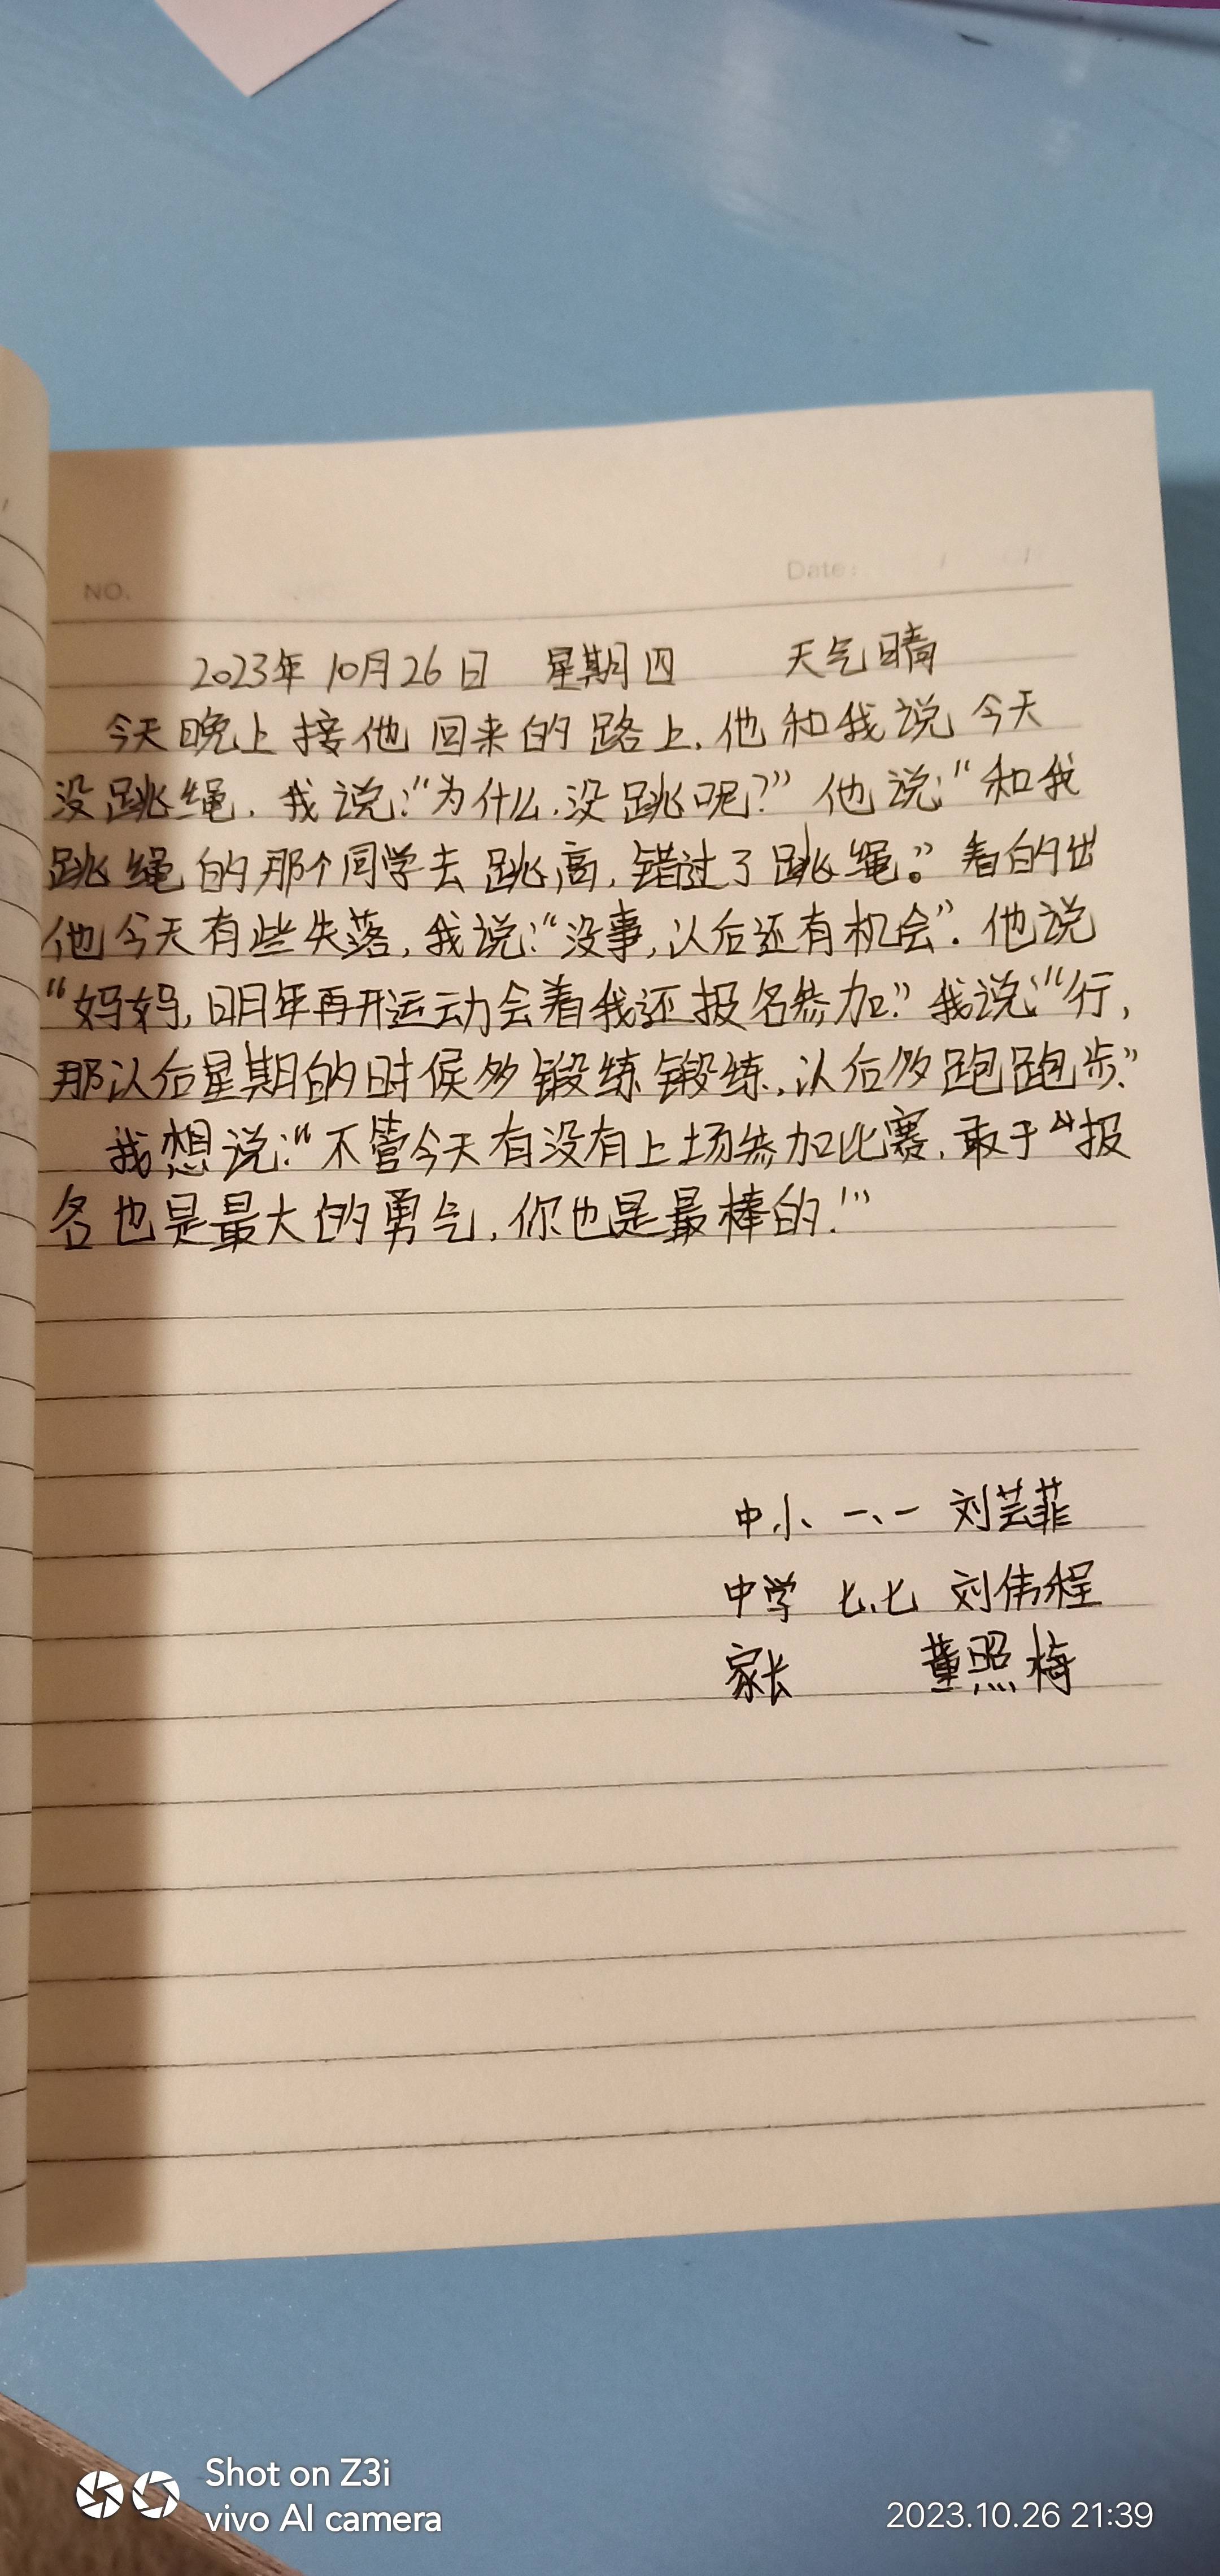 NO.
Date: / /
2023年10月26日 星期四 天气晴
今天晚上接他回来的路上,他和我说今天
没跳绳,我说:“为什么,没跳呢?”他说:“和我
跳绳的那个同学去跳高,错过了跳绳。”看的出
他今天有些失落,我说:“没事,以后还有机会”.他说
“妈妈,明年再开运动会着我还报名参加.”我说:“行,
那以后星期的时候多锻练锻练,以后多跑跑步.”
我想说:“不管今天有没有上场参加比赛,敢于“报
名也是最大的勇气,你也是最棒的!”
中小 一、一 刘芸菲
中学 七.七 刘伟程
家长 董照梅
Shot on Z3i
vivo AI camera
2023.10.26 21:39